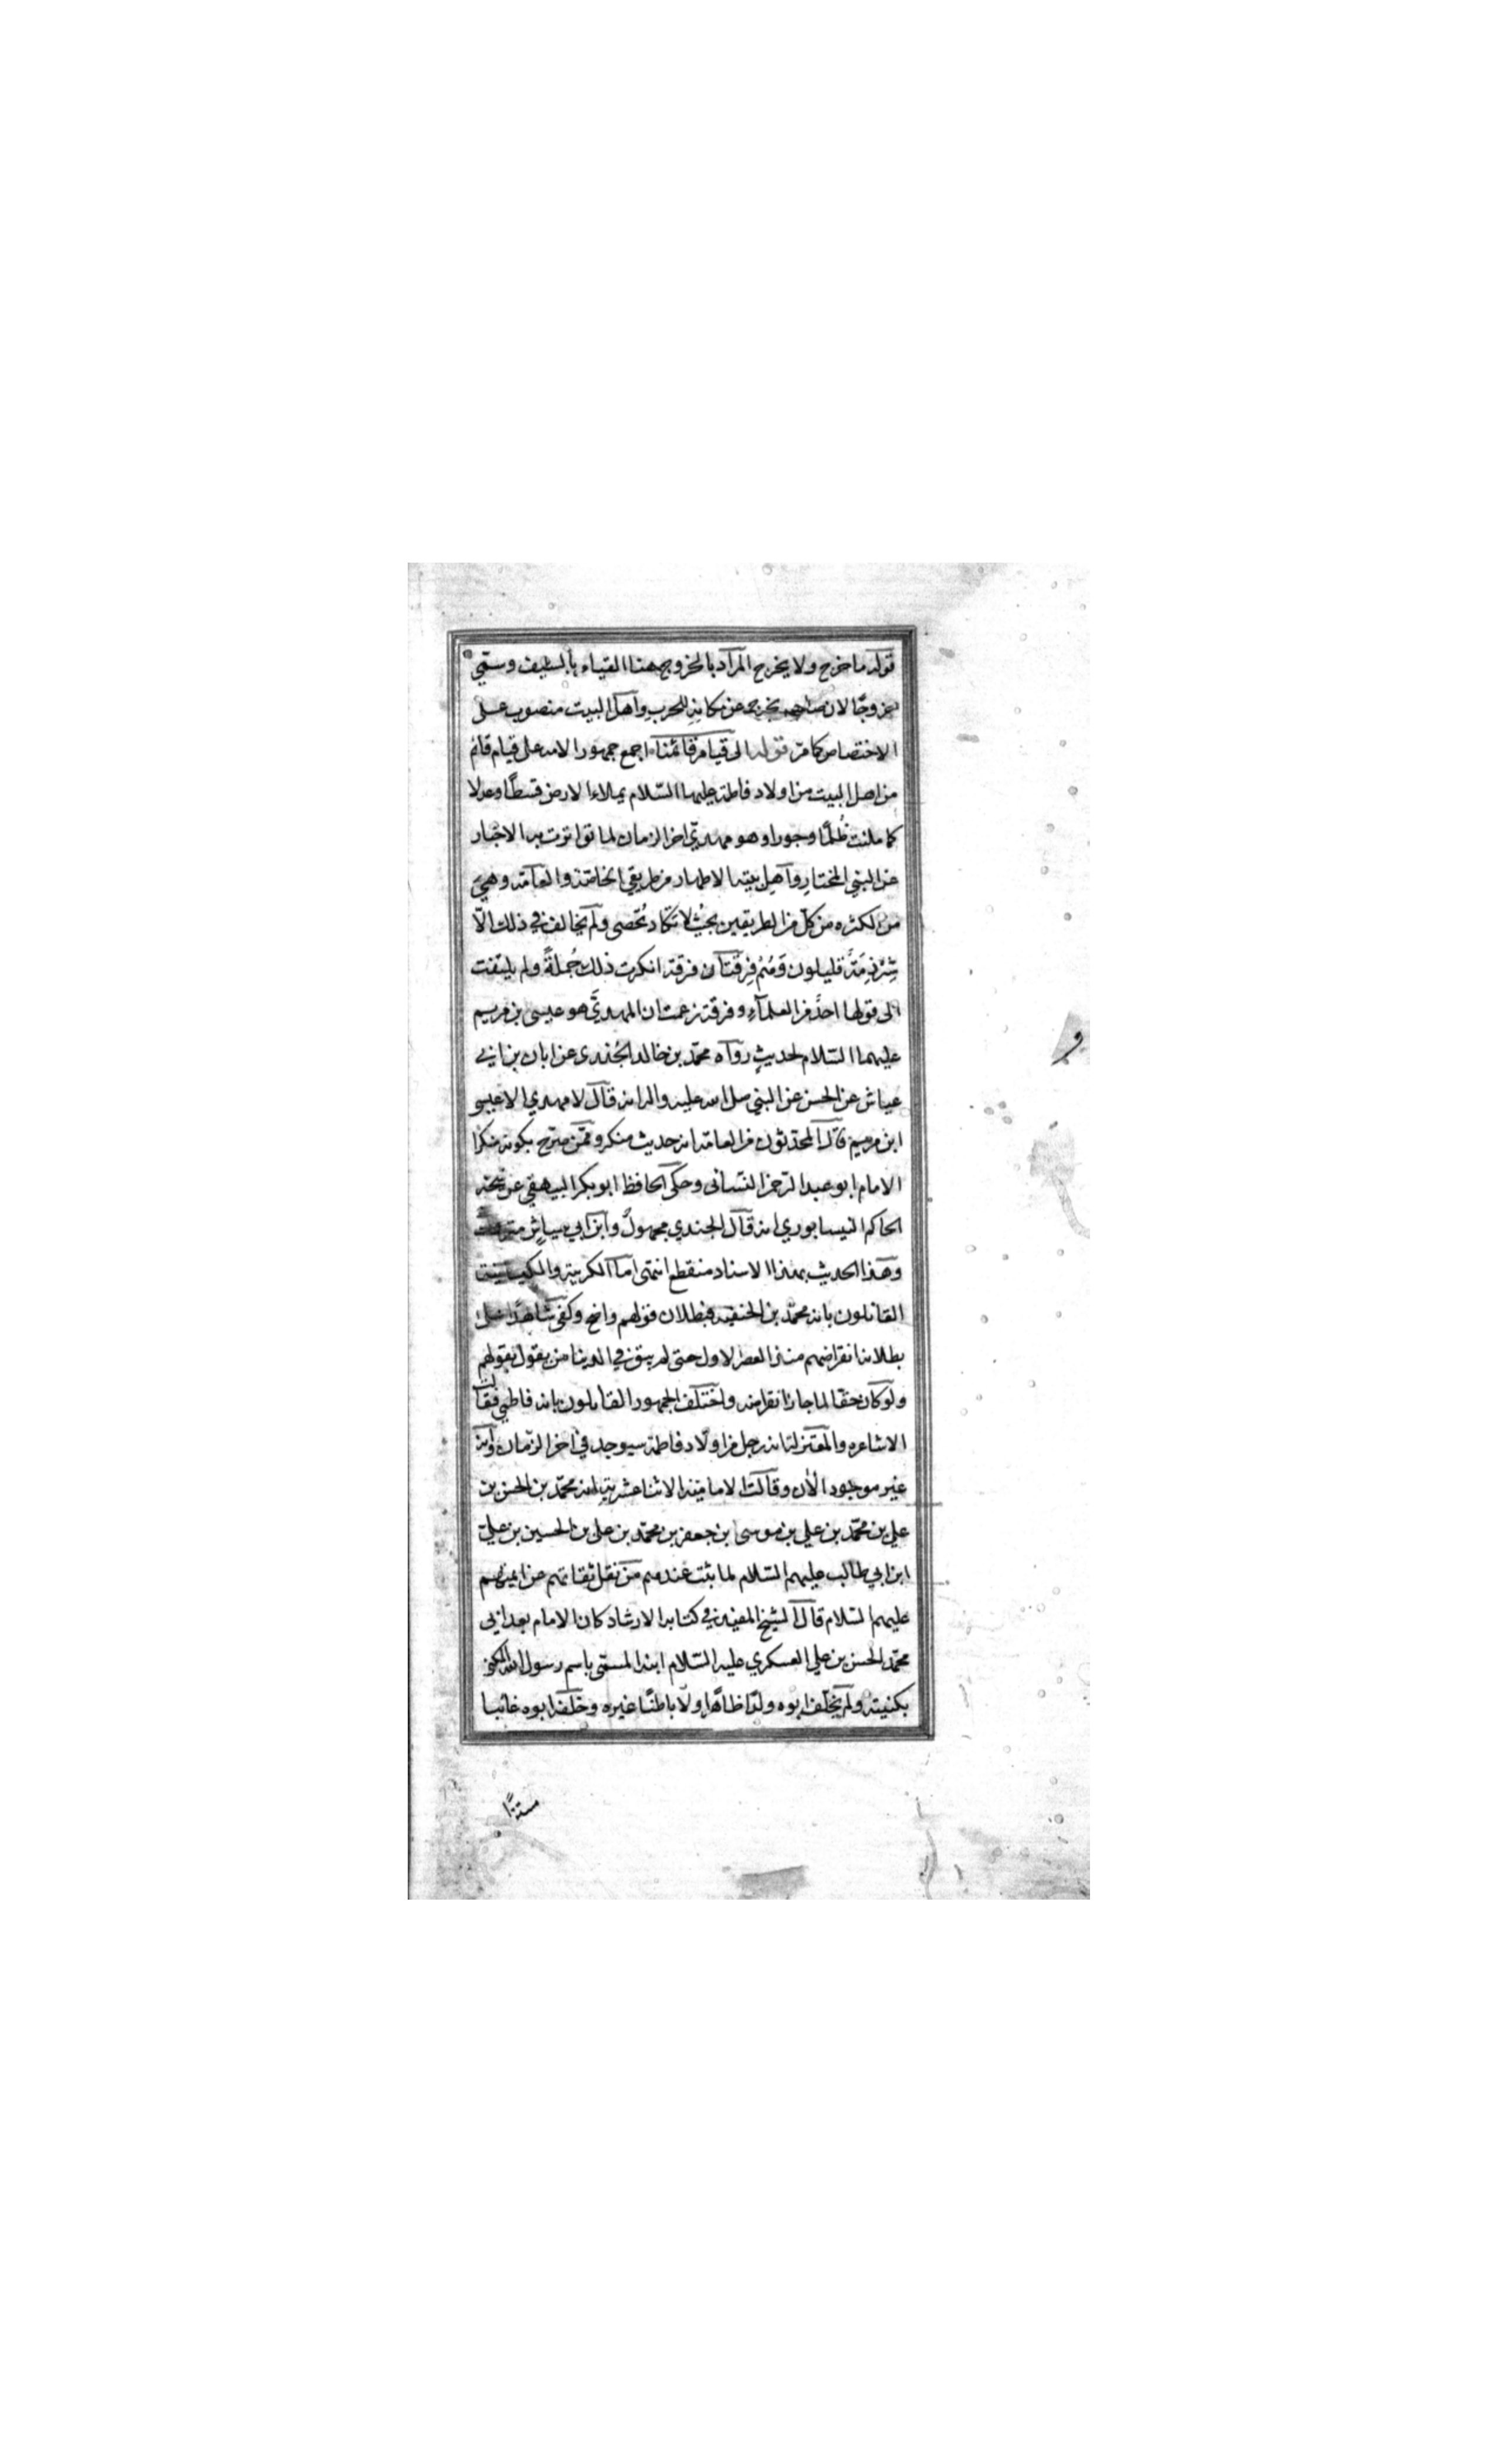 قوله ما خرج ولا يخرج المراد بالخروج ههنا القيام بالسيف وسمي
خروجًا لان صاحبه يخرج عن مكانه للحرب واهل البيت منصوب على
الاختصاص كما مرّ قوله الى قيام قائمنا اجمع جمهور الامه على قيام قائم
من اهل البيت من اولاد فاطمة عليها السّلام يملاء الارض قسطًا وعدلا
كما ملئت ظُلمًا وجورا وهو مهديّ اخر الزمان لما تواترت به الاخبار
عن النبي المختار وآهل بيته الاطهار من طريقي الخاصّة والعامّة وهي
من الكثره من كلّ من الطريقين بحيثُ لا تكاد تُحصى ولم يخالف في ذلك الّا
شِرْذِمَةً قليلون وَهُمْ فِرقتان فرقة انكرت ذلك جُملةً ولم يلتفت
الى قولها احدٌ من العلمآءِ وفرقة زعمت ان المهديَّ هو عيسى بن مريم
عليهما السّلام لحديثٍ رواه محمّد بن خالد الجُندي عن ابان بن ابي
عياش عن الحسن عن النبي صلى الله عليه واله انه قال لا مهدي الا عيسى
ابن مريم قال المحدّثون من العامّة انه حديث منكر وممّن صرّح بكونه منكرًا
الامام ابو عبد الرّحمن النسّائي وحكى الحافظ ابو بكر البيهقي عن شيخه
الحاكم النيسابوري انه قال الجندي مجهولٌ وابن ابي عياشٍ متروكٌ
وهذا الحديث بهذا الاسناد منقطع انتهى اما الكربية والكيسانية
القائلون بانه محمّد بن الحنفيه فبطلان قولهم واضح وكفى شاهدًا على
بطلانه انقراضهم منذ العصر الاول حتى لم يبق في الدينا من يقول بقولهم
ولو كان حقّا لما جاز انقراضه واختلف الجمهور القائلون بانه فاطمي فقالت
الاشاعره والمعتزلة انه رجل من اولاد فاطمة سيوجد في اخر الزمان وانه
غير موجود الآن وقالت الاماميّة الاثناعشرية انه محمّد بن الحسن بن
علي بن محمّد بن علي بن موسى بن جعفر بن محمّد بن علي بن الحسين بن علي
ابن ابي طالب عليهم السّلام لما ثبت عندهم من نقل ثقاتهم عن ائمتهم
عليهم السّلام قال الشيخ المفيد في كتابه الارشاد كان الامام بعد ابي
محمّد الحسن بن علي العسكري عليه السّلام ابنه المسمّى باسم رسول الله المكنى
بكنيته ولم يخلّف ابوه ولدًا ظاهرًا ولا باطنًا غيره وخلّفه ابوه غائبا
مستترًا